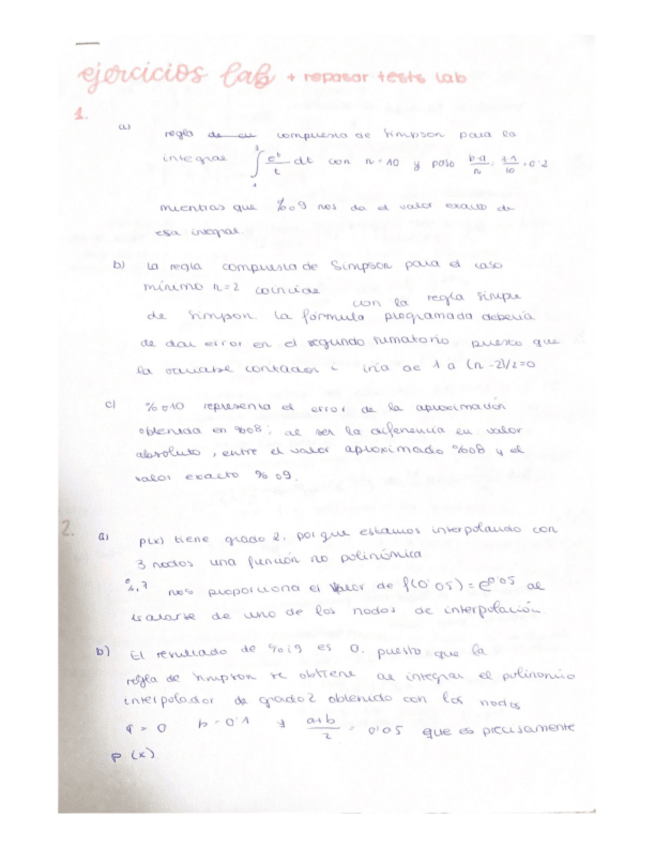 ejercicios lab + repasar tests lab
1.
a) regla de cu compuesta de Simpson para la
integral ∫ e^t/t dt con n=10 y paso b-a/n = /10 = 0'2
mientras que %o9 nos da el valor exacto de
esa integral.
b) La regla compuesta de Simpson para el caso
mínimo n=2 coincide con la regla simple
de Simpson la fórmula programada debería
de dar error en el segundo sumatorio puesto que
la variable contador i iría de 1 a (n-2)/2=0
c) %o10 representa el error de la aproximación
obtenida en %o8; al ser la diferencia en valor
absoluto, entre el valor aproximado %o8 y el
valor exacto %o9.
2.
a) p(x) tiene grado 2. porque estamos interpolando con
3 nodos una función no polinómica
nos proporciona el valor de f(0'05)=e^0'05 al
tratarse de uno de los nodos de interpolación.
b) El resultado de %i9 es 0. puesto que la
regla de Simpson se obtiene al integrar el polinomio
interpolador de grado 2 obtenido con los nodos
a = 0 b = 0'1 y a+b/2 = 0'05 que es precisamente
p(x)